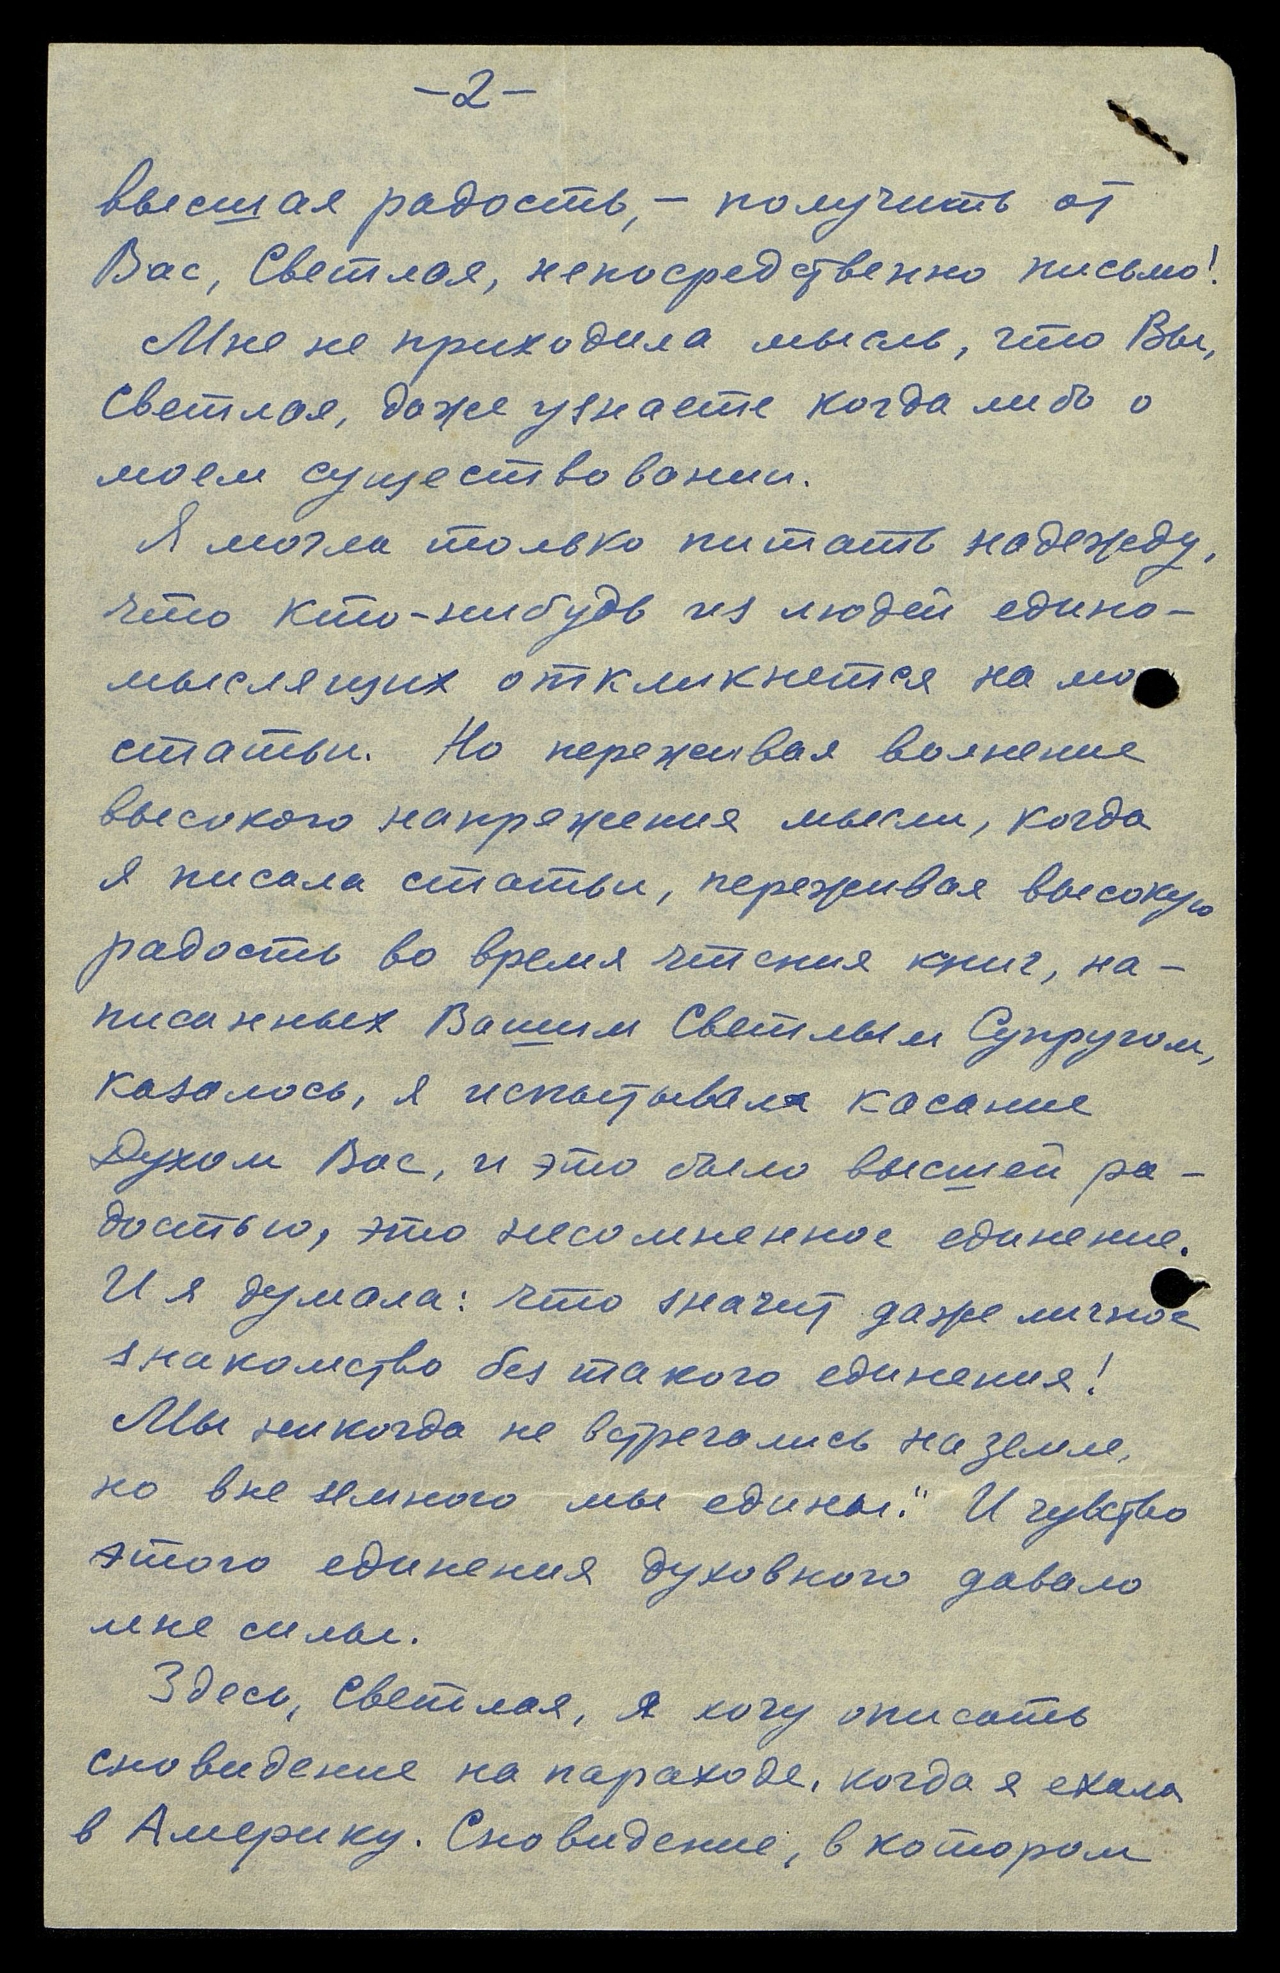 -2-
высшая радость, – получить от
Вас, Светлая, непосредственно письмо!
Мне не приходила мысль, что Вы,
Светлая, даже узнаете когда либо о
моем существовании.
Я могла только питать надежду,
что кто-нибудь из людей едино-
мыслящих откликнется на мо
статьи. Но переживая волнение
высокого напряжения мысли, когда
я писала статьи, переживая высокую
радость во время чтения книг, на-
писанных Вашим Светлым Супругом,
казалось, я испытывала касание
Духом Вас, и это было высшей ра-
достью, это несомненное единение.
И я думала: что значит даже личное
знакомство без такого единения!
Мы никогда не встречались на земле,
но вне земного мы едины." И чувство
этого единения духовного давало
мне силы.
Здесь, Светлая, я хочу описать
сновидение на параходе, когда я ехала
в Америку. Сновидение, в котором